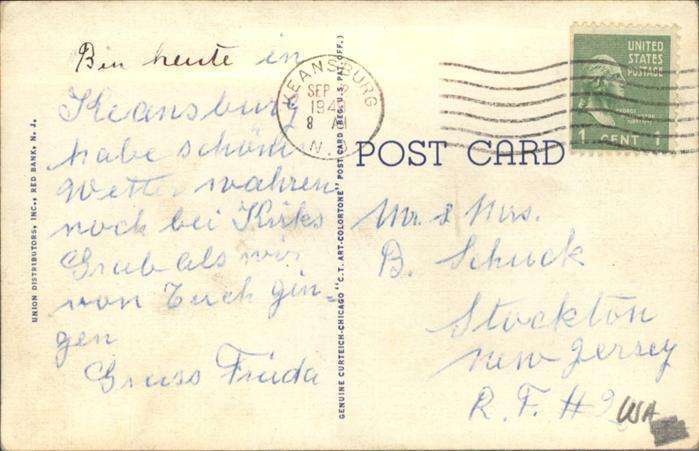 Bin heute in
Keansburg
habe schön
Wetter wahren
noch bei Kirks
Grab als wir
von Euch gin=
gen
Gruss Frieda
UNION DISTRIBUTORS, INC., RED BANK, N. J.
GENUINE CURTEICH-CHICAGO "C.T. ART-COLORTONE" POST CARD (REG. U.S. PAT. OFF.)
KEANSBURG
SEP
194
8 A
N.
UNITED
STATES
POSTAGE
1 CENT 1
POST CARD
Mr. & Mrs.
B. Schuck
Stockton
New Jersey
R.F. #2
USA